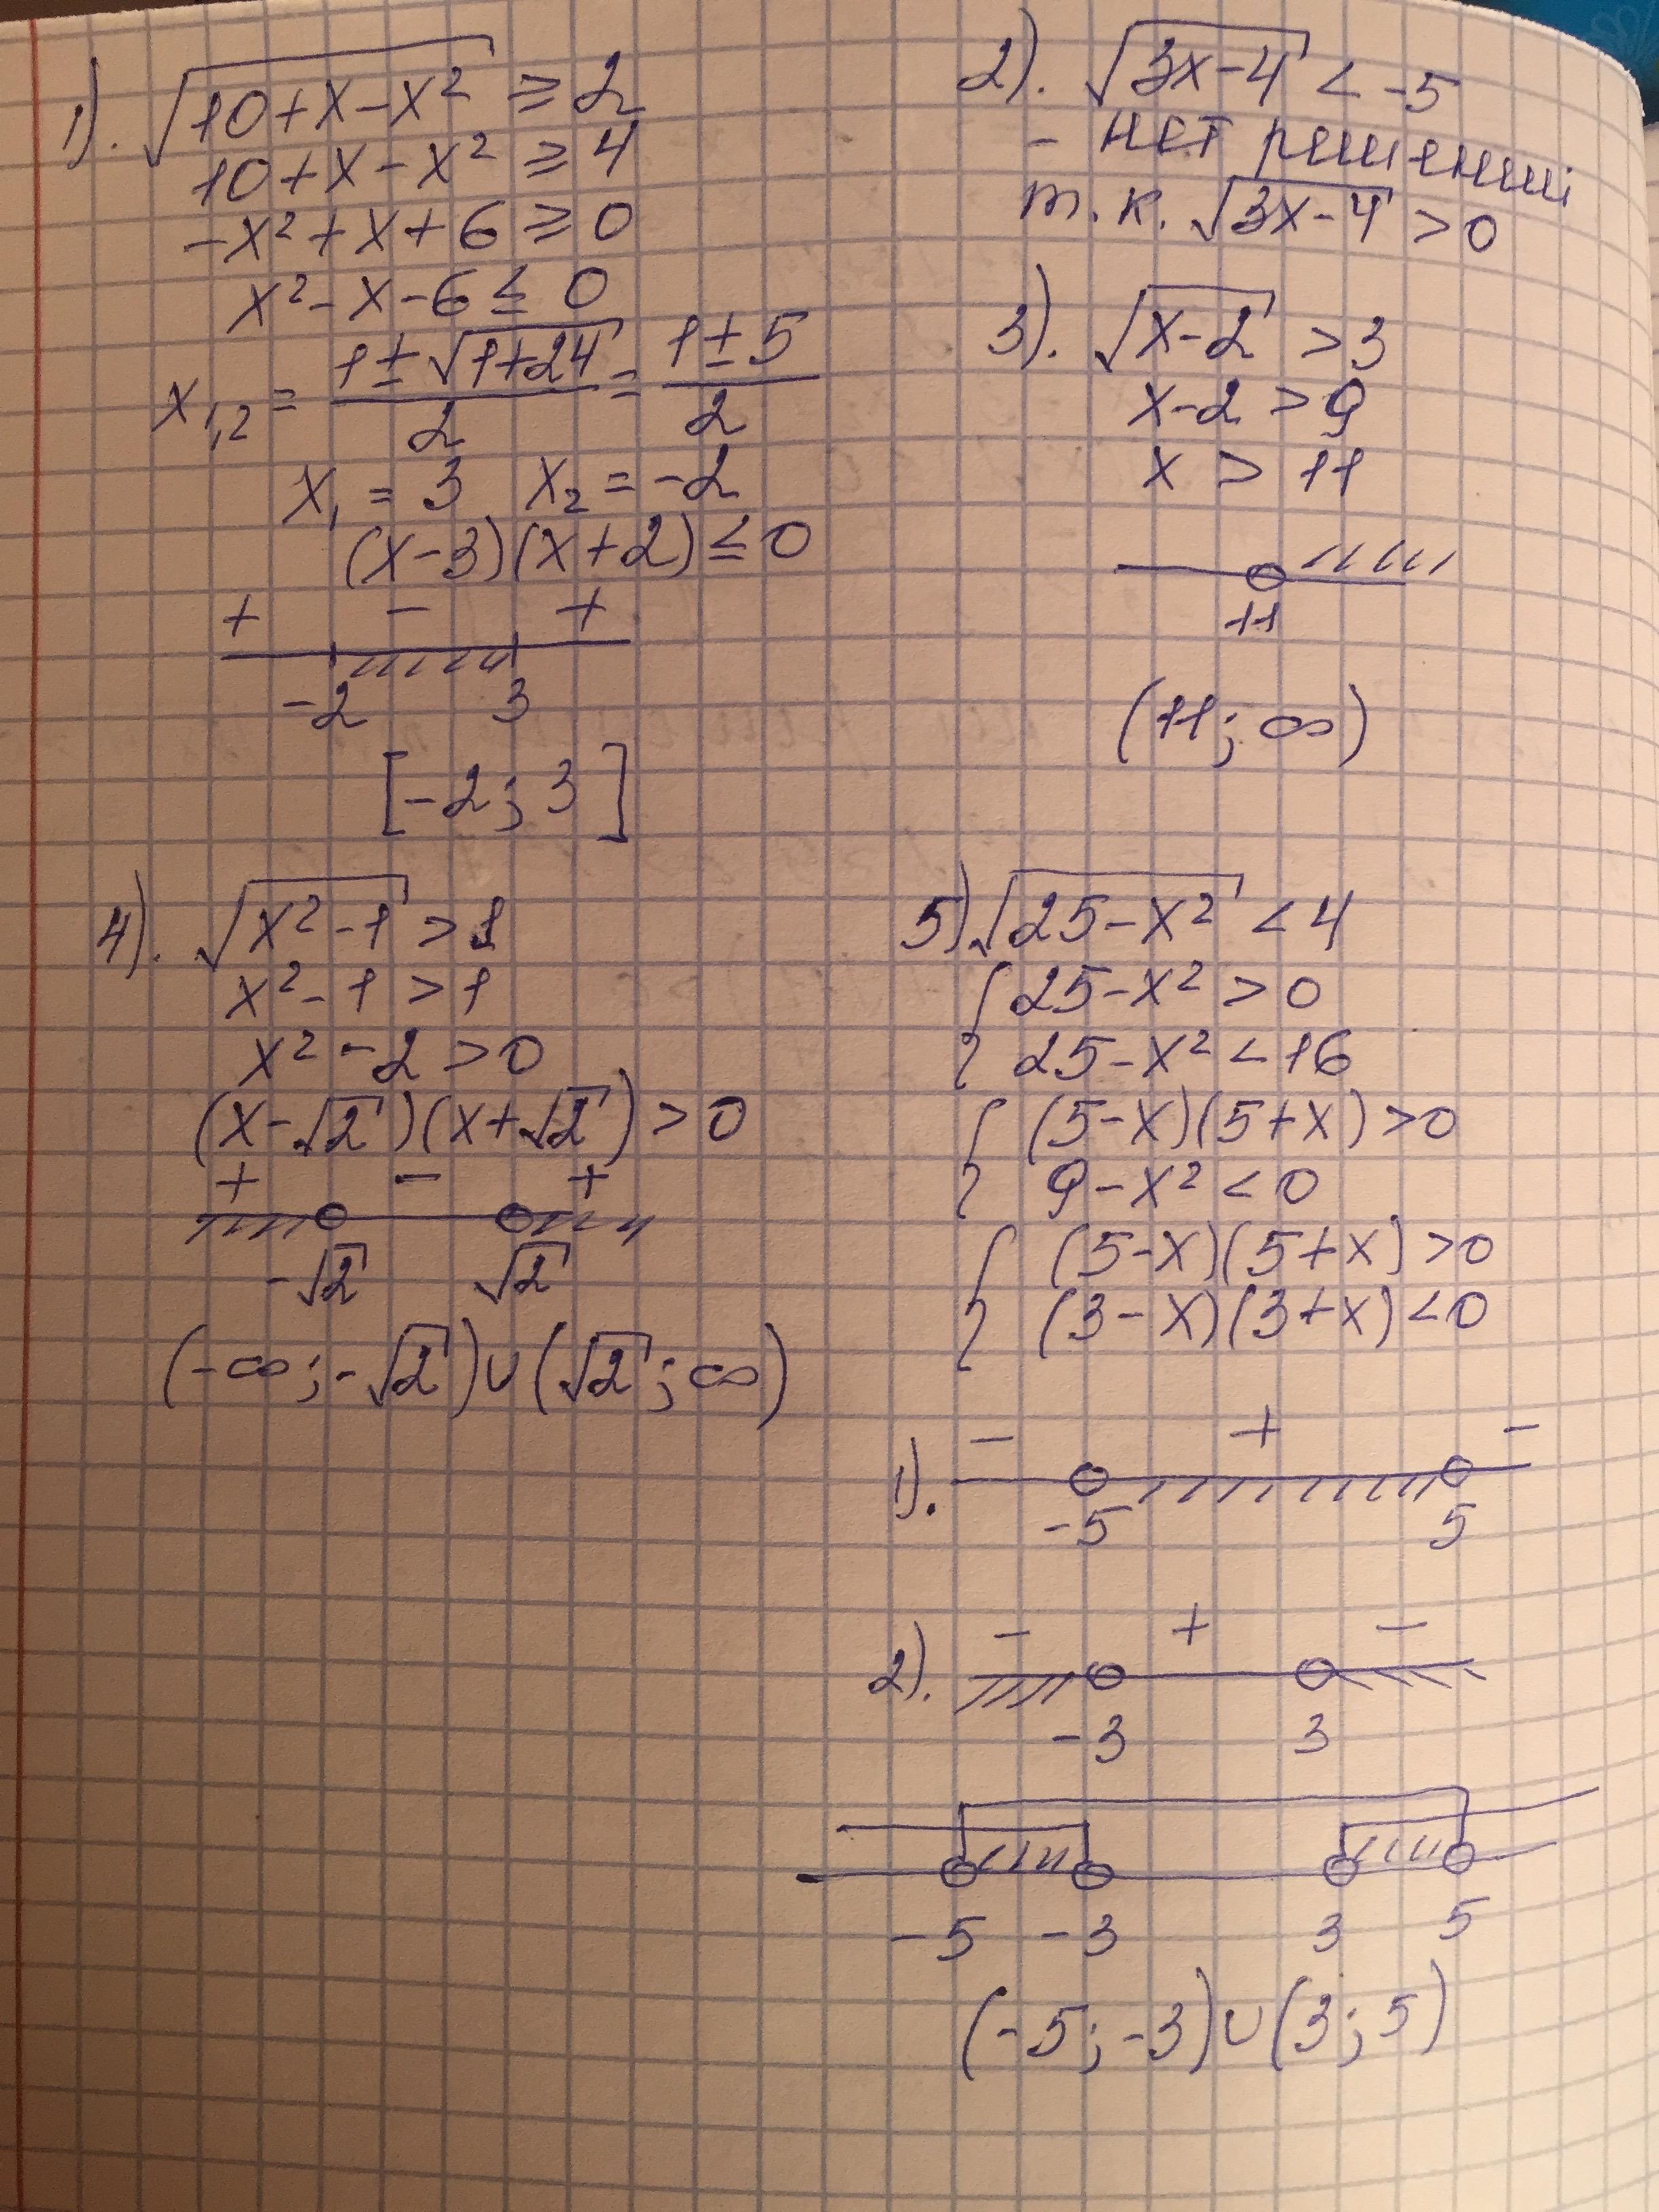 1). √(10+x-x²) ≥ 2
10+x-x² ≥ 4
-x²+x+6 ≥ 0
x²-x-6 ≤ 0
x₁,₂ = (1±√(1+24))/2 = (1±5)/2
x₁ = 3 x₂ = -2
(x-3)(x+2) ≤ 0
+ - +
-2 3
[-2; 3]
2). √(3x-4) < -5
- нет решений
т.к. √(3x-4) > 0
3). √(x-2) > 3
x-2 > 9
x > 11
11
(11; ∞)
4). √(x²-1) > 1
x²-1 > 1
x²-2 > 0
(x-√2)(x+√2) > 0
+ - +
-√2 √2
(-∞; -√2)∪(√2; ∞)
5) √(25-x²) < 4
{ 25-x² > 0
25-x² < 16
{ (5-x)(5+x) > 0
9-x² < 0
{ (5-x)(5+x) > 0
(3-x)(3+x) < 0
- + -
1).
-5 5
- + -
2).
-3 3
-5 -3 3 5
(-5; -3)∪(3; 5)